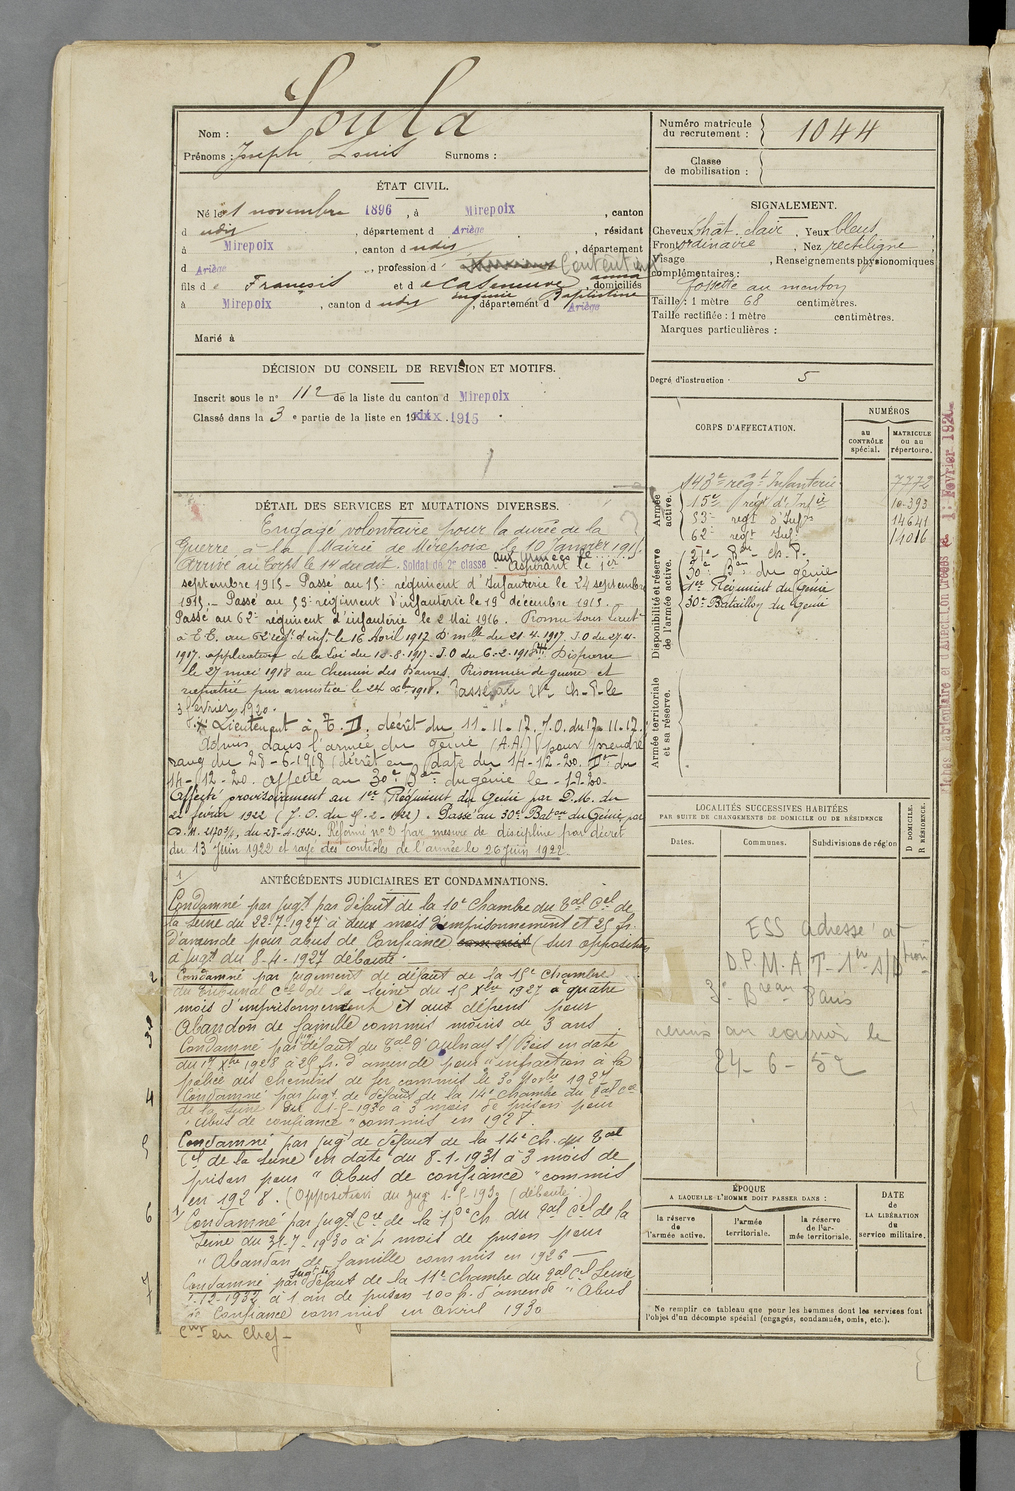 Soula
Nom :
Prénoms : Joseph, Louis Surnoms :
Numéro matricule
du recrutement : 1044
Classe
de mobilisation :
ÉTAT CIVIL.
Né le 1 novembre 1896, à Mirepoix, canton
d udit, département d Ariège, résidant
à Mirepoix, canton d udit, département
d Ariège, profession d
fils d e François et d e Caseneuve, domiciliés
Eugénie Baptistine
à Mirepoix, canton d udit, département d Ariège
Marié à
SIGNALEMENT.
Cheveux chât. clair. Yeux bleus,
Front ordinaire, Nez rectiligne
Visage, Renseignements physionomiques
complémentaires :
fossette au menton
Taille : 1 mètre 68 centimètres.
Taille rectifiée : 1 mètre centimètres.
Marques particulières :
DÉCISION DU CONSEIL DE REVISION ET MOTIFS.
Inscrit sous le n° 112 de la liste du canton d Mirepoix
Classé dans la 3 e partie de la liste en 19 1915
Degré d'instruction : 5
CORPS D'AFFECTATION.
NUMÉROS
au
CONTRÔLE
spécial.
MATRICULE
ou au
répertoire.
Armée
active.
143e régt Infanterie 7772
15e régt d'Infie 10.393
53e regt d'Infie 14641
62e regt Infie 14016
Disponibilité et réserve
de l'armée active.
30e Bon du génie
1er Régiment du Génie
30e Bataillon du Génie
Armée territoriale
et sa réserve.
DÉTAIL DES SERVICES ET MUTATIONS DIVERSES.
Engagé volontaire pour la durée de la
Guerre à la Mairie de Mirepoix le 10 Janvier 1915
Arrivé au corps le 14 du dit. Soldat de 2e classe aux armées le Aspirant le 1er
septembre 1915 - Passé au 15e régiment d'Infanterie le 24 septembre
1915. - Passé au 53e régiment d'infanterie le 19 décembre 1915.
Passé au 62e régiment d'infanterie le 2 Mai 1916. Promu sous lieut
à T.T. au 62e régt d'inf. le 16 Avril 1917 D. mlle du 21-4-1917 J.O du 27-4-
1917. application de la Loi du 10-8-1917 - J.O du 6-2-1918 Disparu
le 27 mai 1918 au Chemin des Dames. Prisonnier de guerre et
rapatrié par armistice le 24 Xbre 1918. Passé au 21e ch-P- le
3 février 1920.
Lieutenant à T.D. décret du 11-11-17. J.O. du 17-11-17.
Admis dans l'armée du génie (A.A.) (pour prendre
rang du 28-6-1918 (décret en date du 14-12-20. Don du
14-12-20. Affecté au 30e Bon du génie le -12-20-
Affecté provisoirement au 1er Régiment du Génie par D.M. du
22 février 1922 (J.O. du 2-1922). Passé au 30e Baton du Génie, par
D.M. du 28-4-1922. Réformé n° 2 par mesure de discipline par décret
du 13 Juin 1922 et rayé des contrôles de l'armée le 26 Juin 1922.
LOCALITÉS SUCCESSIVES HABITÉES
PAR SUITE DE CHANGEMENTS DE DOMICILE OU DE RÉSIDENCE
Dates.
Communes.
Subdivisions de région
D DOMICILE.
R RÉSIDENCE.
ESS adressé au
D.P.M.A.T. 1re s/
3e Breau Paris
remis au courrier le
24-6-52
ANTÉCÉDENTS JUDICIAIRES ET CONDAMNATIONS.
1
Condamné par jugt par défaut de la 10e chambre du Tal Cel de
la Seine du 22-7-1927 à deux mois d'emprisonnement et 25 fr.
d'amende pour abus de Confiance (sur opposition
à jugt du 8-4-1927 débouté.
2
Condamné par jugement de défaut de la 15e chambre
du tribunal Cel de la Seine du 15 Xbre 1927 à quatre
mois d'emprisonnement et aux dépens pour
Abandon de famille commis moins de 3 ans.
3
Condamné par défaut du Tal d'Aulnay s/Bois en date
du 1er Xbre 1928 à 25 fr. d'amende pour "infraction à la
police des chemins de fer commis le 30 1927
4
Condamné par jugt de défaut de la 14e chambre du Tal Cel
de la Seine du 1-5-1930 à 3 mois de prison pour
"abus de confiance" commis en 1928.
5
Condamné par jugt de défaut de la 14e Ch. du Tal
Cel de la Seine en date du 8-1-1931 à 3 mois de
prison pour "Abus de confiance" commis
en 1928. (Opposition du jugt 1-5-1930 (débouté.)
6
Condamné par jugt Cel de la 15e Ch du Tal Cel de la
Seine du 31-7-1930 à 4 mois de prison pour
"Abandon de famille commis en 1926 -
7
Condamné par jugt de défaut de la 11e chambre du Tal Cel Seine
-12-1932 à 1 an de prison 100 fr. d'amende "Abus
de Confiance commis en avril 1930
en Chef -
ÉPOQUE
A LAQUELLE L'HOMME DOIT PASSER DANS :
la réserve
de l'armée active.
l'armée
territoriale.
la réserve
de l'ar-
mée territoriale.
DATE
de
LA LIBÉRATION
du
service militaire.
Ne remplir ce tableau que pour les hommes dont les services font
l'objet d'un décompte spécial (engagés, condamnés, omis, etc.).